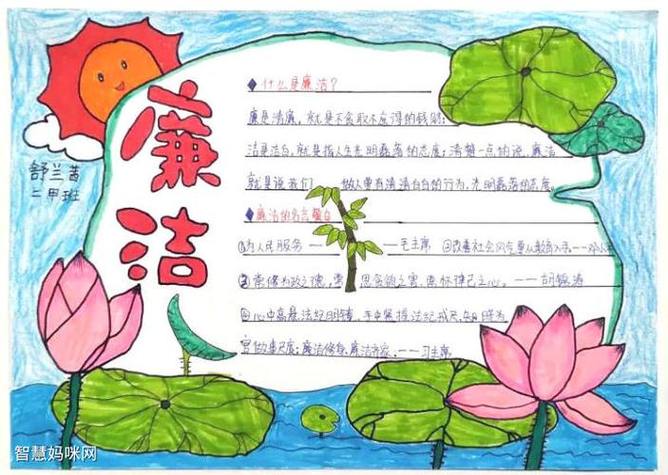 廉洁
舒兰茜
二甲班
◆什么是廉洁?
廉是清廉,就是不贪取不应得的钱财;
洁是洁白,就是指人生光明磊落的态度;清楚一点的说,廉洁
就是说我们 做人要有清清白白的行为,光明磊落的态度。
◆廉洁的名言警句
①为人民服务 ——毛主席 ②改善社会风气要从教育入手。——邓小平
③常修为政之德,常思贪欲之害,常怀律己之心。——胡锦涛
④心中高悬法纪明镜,手中紧握法纪戒尺,知晓为
官做事尺度;廉洁修身、廉洁齐家。——习主席
智慧妈咪网